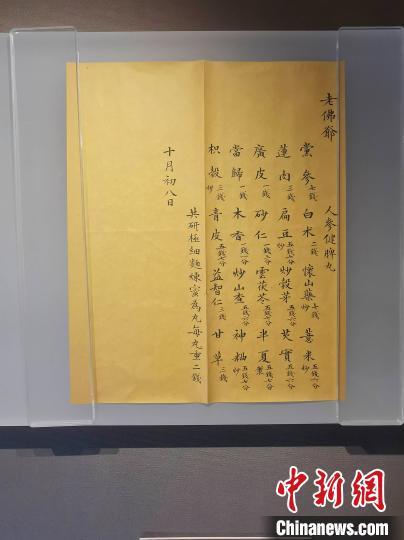 老佛爺 人參健脾丸
黨參七錢 白朮二錢 懷山藥七錢炒 薏米五錢六分炒
蓮肉三錢 扁豆五錢六分炒 炒穀芽五錢六分 芡實五錢六分
廣皮一錢 砂仁 雲茯苓五錢六分 半夏製
當歸一錢 木香 炒山查五錢六分 神麯五錢六分炒
枳殼三錢炒 青皮五錢六分 益智仁三錢 甘草三錢
共研極細麵煉蜜為丸每丸重二錢
十月初八日
中新網
www.chinanews.com